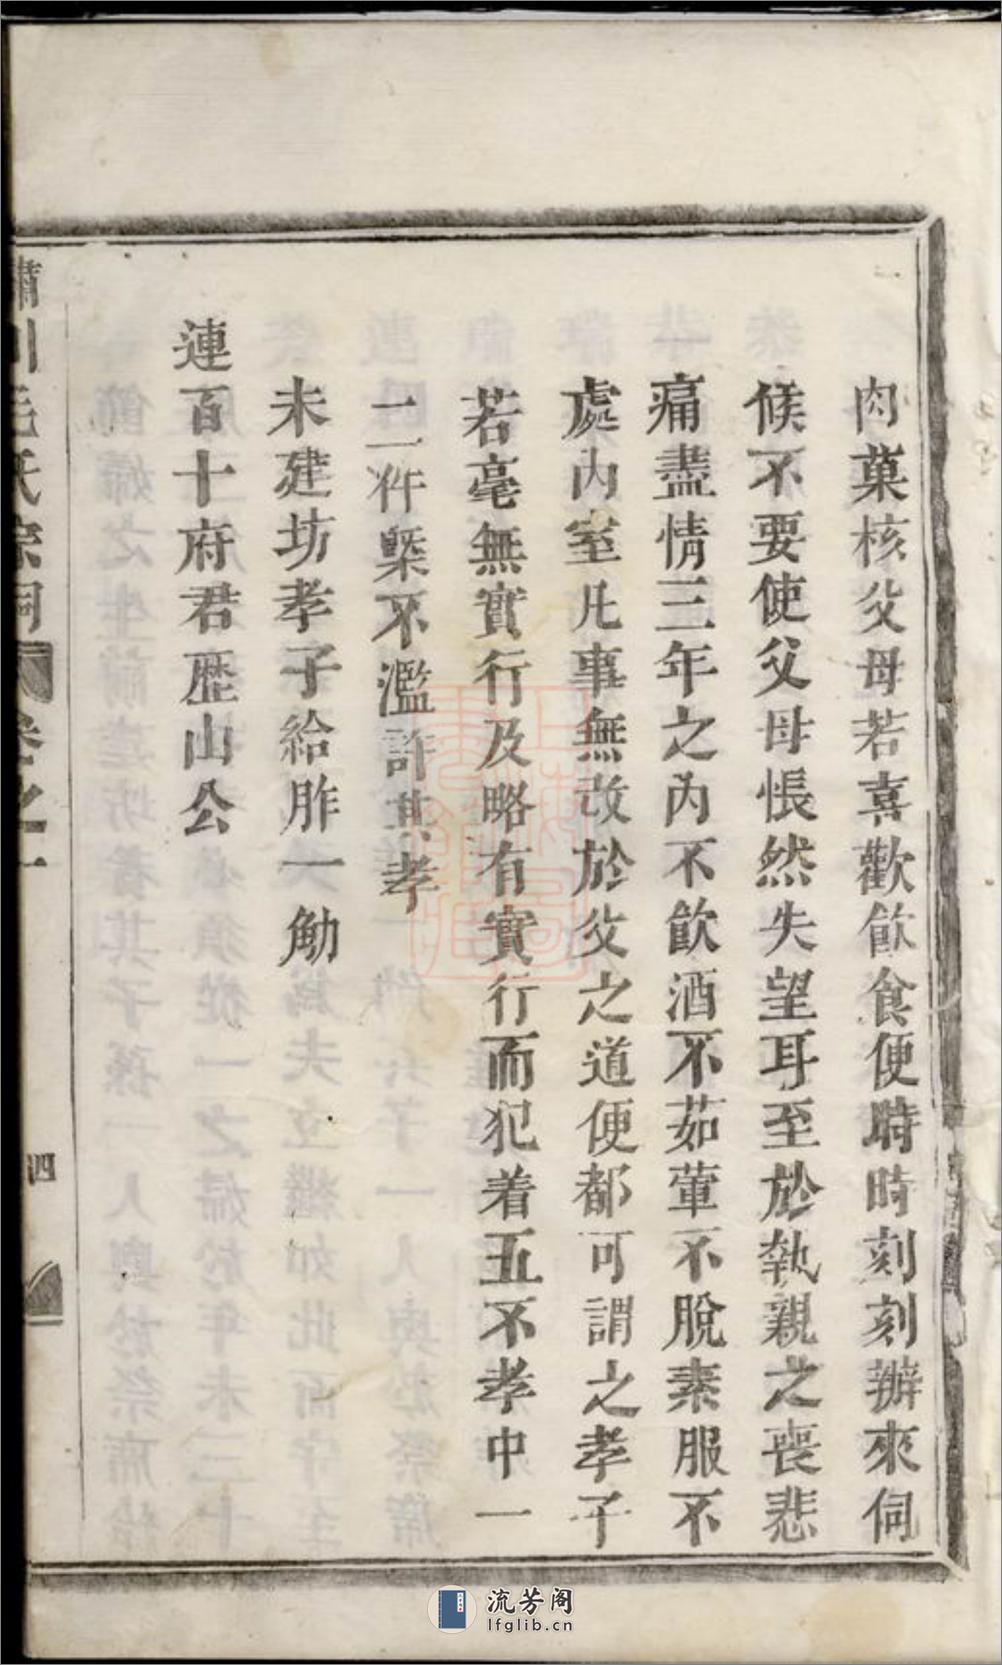 肉菓核父母若喜歡飲食便時時刻刻辦來伺
候不要使父母悵然失望耳至於執親之喪悲
痛盡情三年之內不飲酒不茹葷不脫素服不
處內室凡事無改於父之道便都可謂之孝子
若毫無實行及略有實行而犯着五不孝中一
二件槩不濫許其孝
未建坊孝子給胙一觔
連百十府君歷山公
川毛氏宗祠 卷之一 四
流芳阁
lfglib.cn